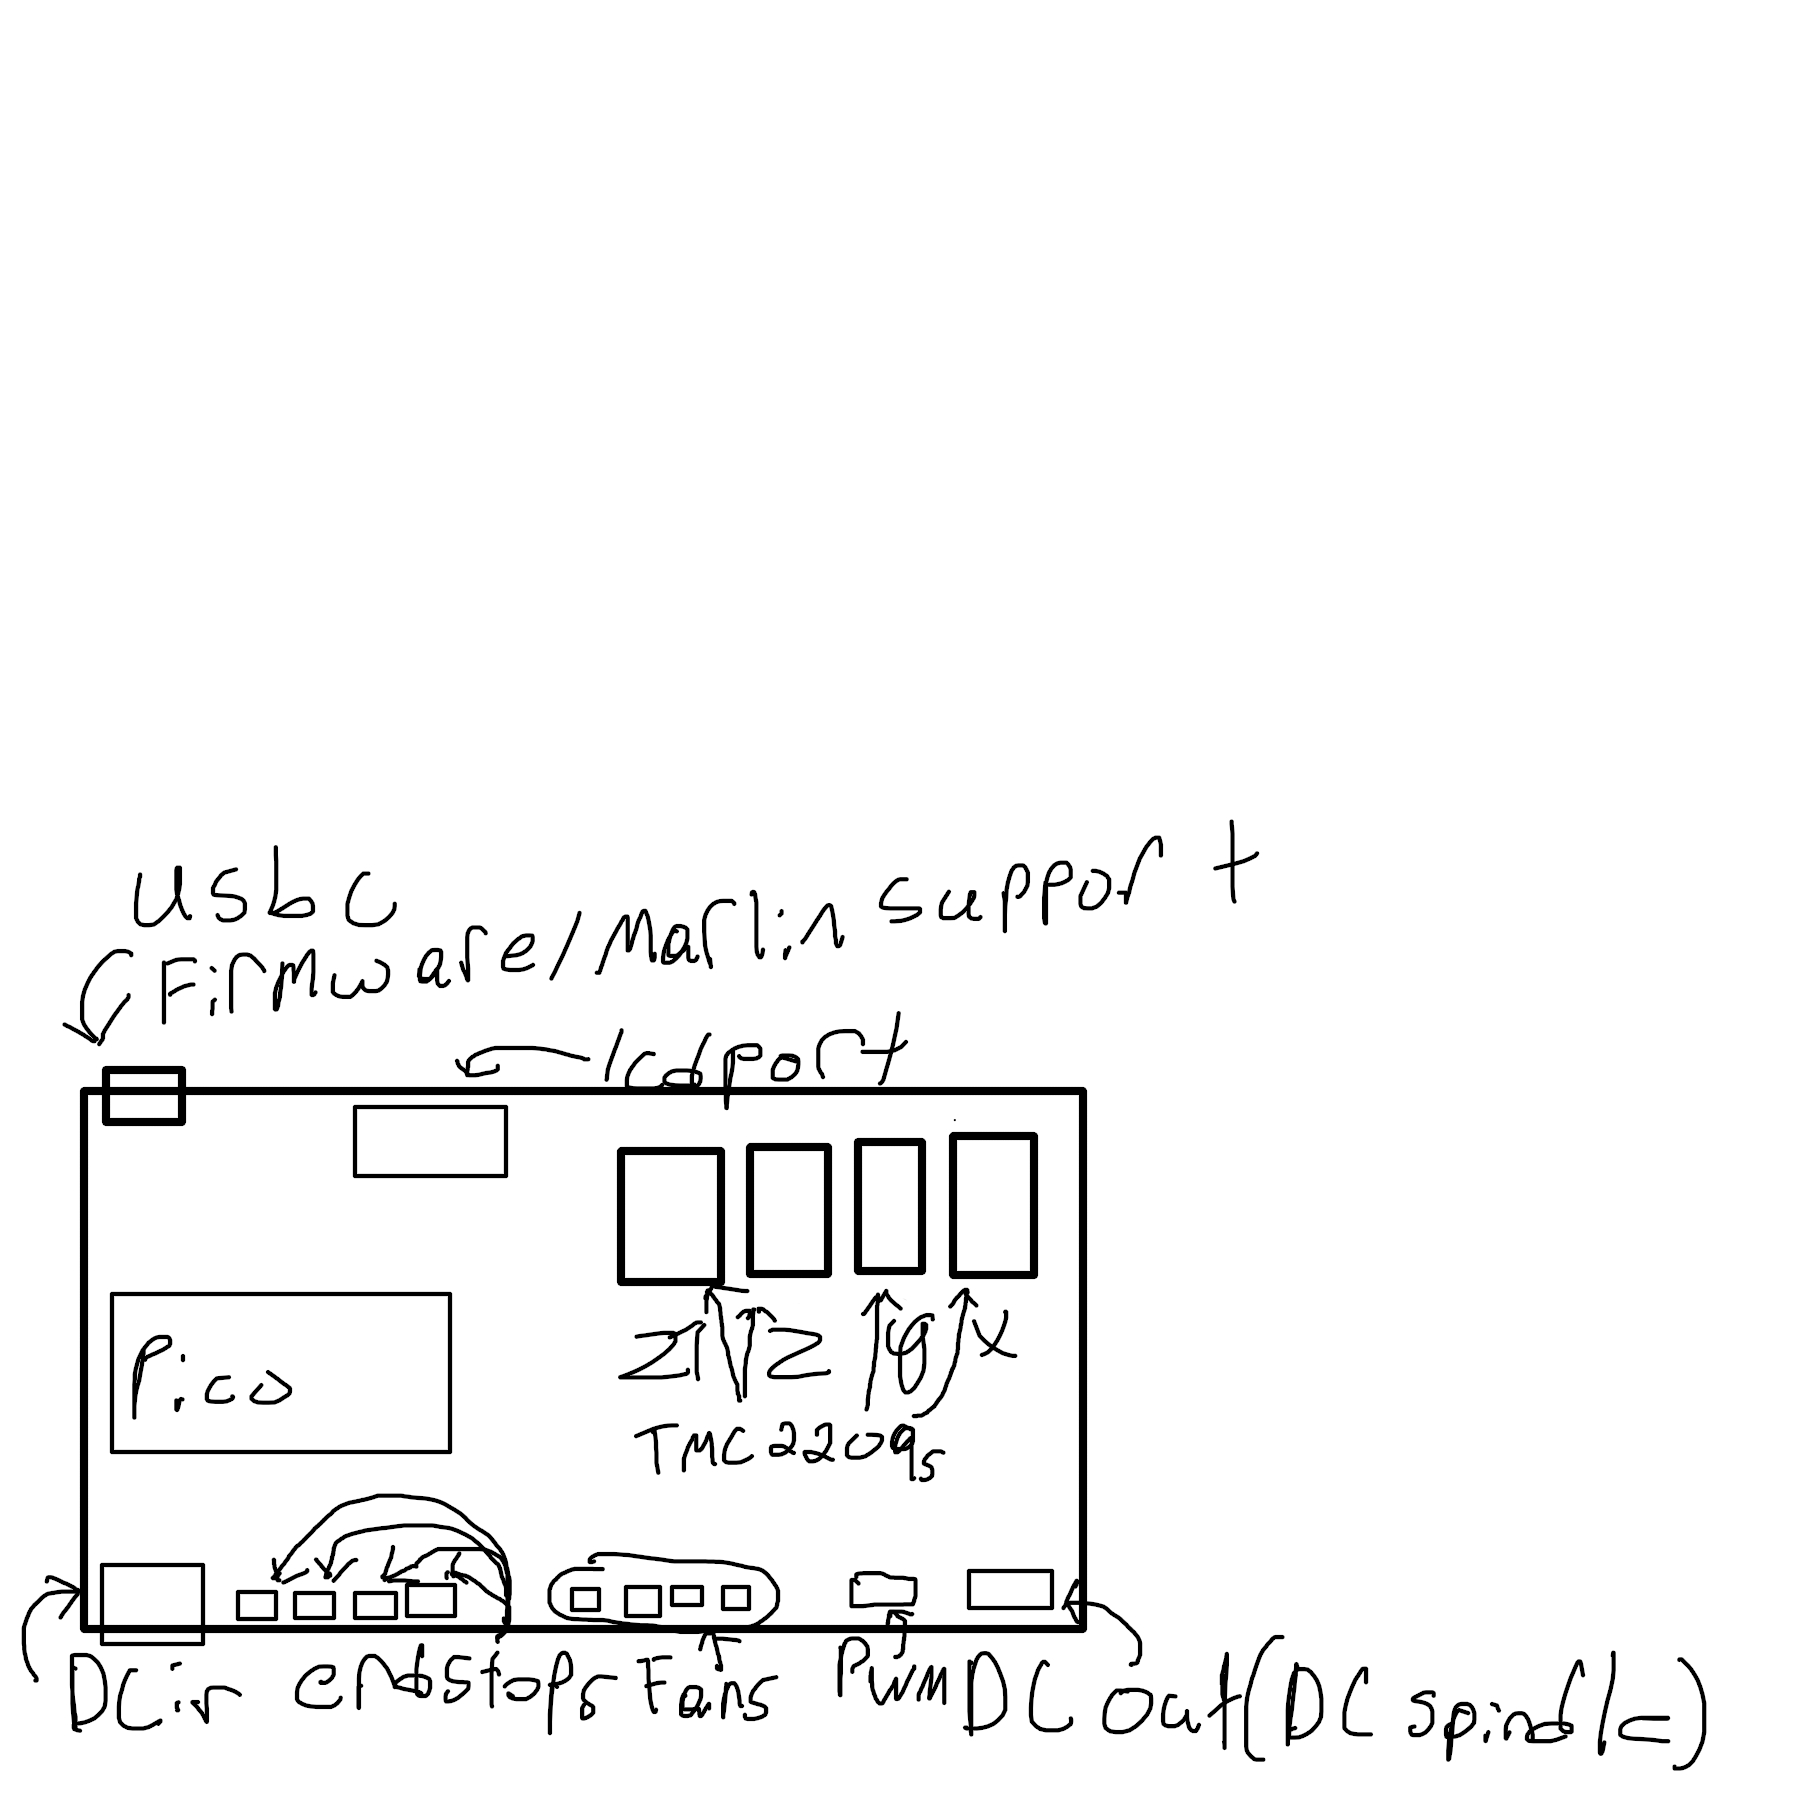 usbc
Firmware/Marlin support
lcd port
Z1 Z y x
Pico
TMC2209s
DC in endstops Fans PWM DC out (DC spindle)